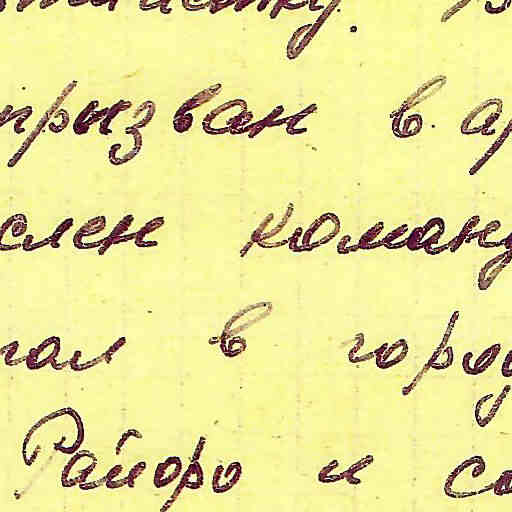 призван в ар
слен команд
гал в горо
Райоро и со